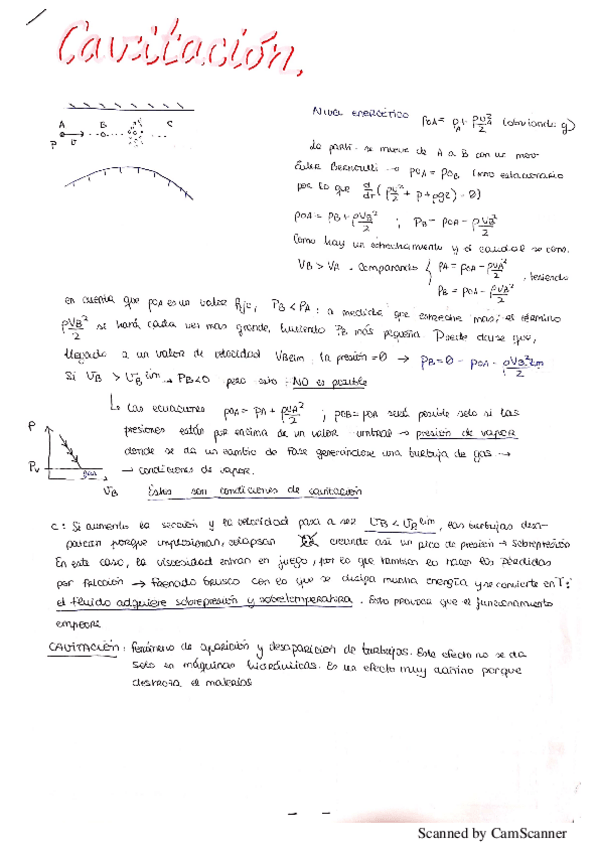 Cavitación.
A B C
P v
NIVEL ENERGÉTICO p0A = pA + ρvA²/2 (obviando g)
La partí. se mueve de A a B con un mov
Euler Bernoulli → p0A = p0B (mov estacionario
por lo que d/dr (ρv²/2 + p + ρgz) = 0)
p0A = pB + ρvB²/2 ; PB = p0A - ρvB²/2
Como hay un estrechamiento y el caudal se cons.
VB > VA . Comparando { pA = p0A - ρvA²/2 , teniendo
PB = p0A - ρvB²/2
en cuenta que p0A es un valor fijo, PB < PA : a medida que estreche más, el término
ρVB²/2 se hará cada vez más grande, haciendo PB más pequeña. Puede darse que,
llegado a un valor de velocidad VBlim, la presión = 0 → PB = 0 = p0A - ρVB²lim/2
Si VB > VB lim → PB<0 pero esto NO es posible
↳ Las ecuaciones p0A = pA + ρvA²/2 ; p0B = p0A será posible solo si las
presiones están por encima de un valor umbral → presión de vapor
donde se da un cambio de fase generándose una burbuja de gas →
→ condiciones de vapor.
P
Pv
gas
VB
Estas son condiciones de cavitación
C: Si aumento la sección y la velocidad pasa a ser VB < VB lim, las burbujas desa-
parecen porque implosionan, colapsan creando así un pico de presión → sobrepresión
En este caso, la viscosidad entran en juego, por lo que también lo hacen las pérdidas
por fricción → frenado brusco con lo que se disipa mucha energía y se convierte en T:
el fluido adquiere sobrepresión y sobretemperatura. Esto provoca que el funcionamiento
empeore.
CAVITACIÓN: fenómeno de aparición y desaparición de burbujas. Este efecto no se da
solo en máquinas hidráulicas. Es un efecto muy dañino porque
destroza el material
Scanned by CamScanner